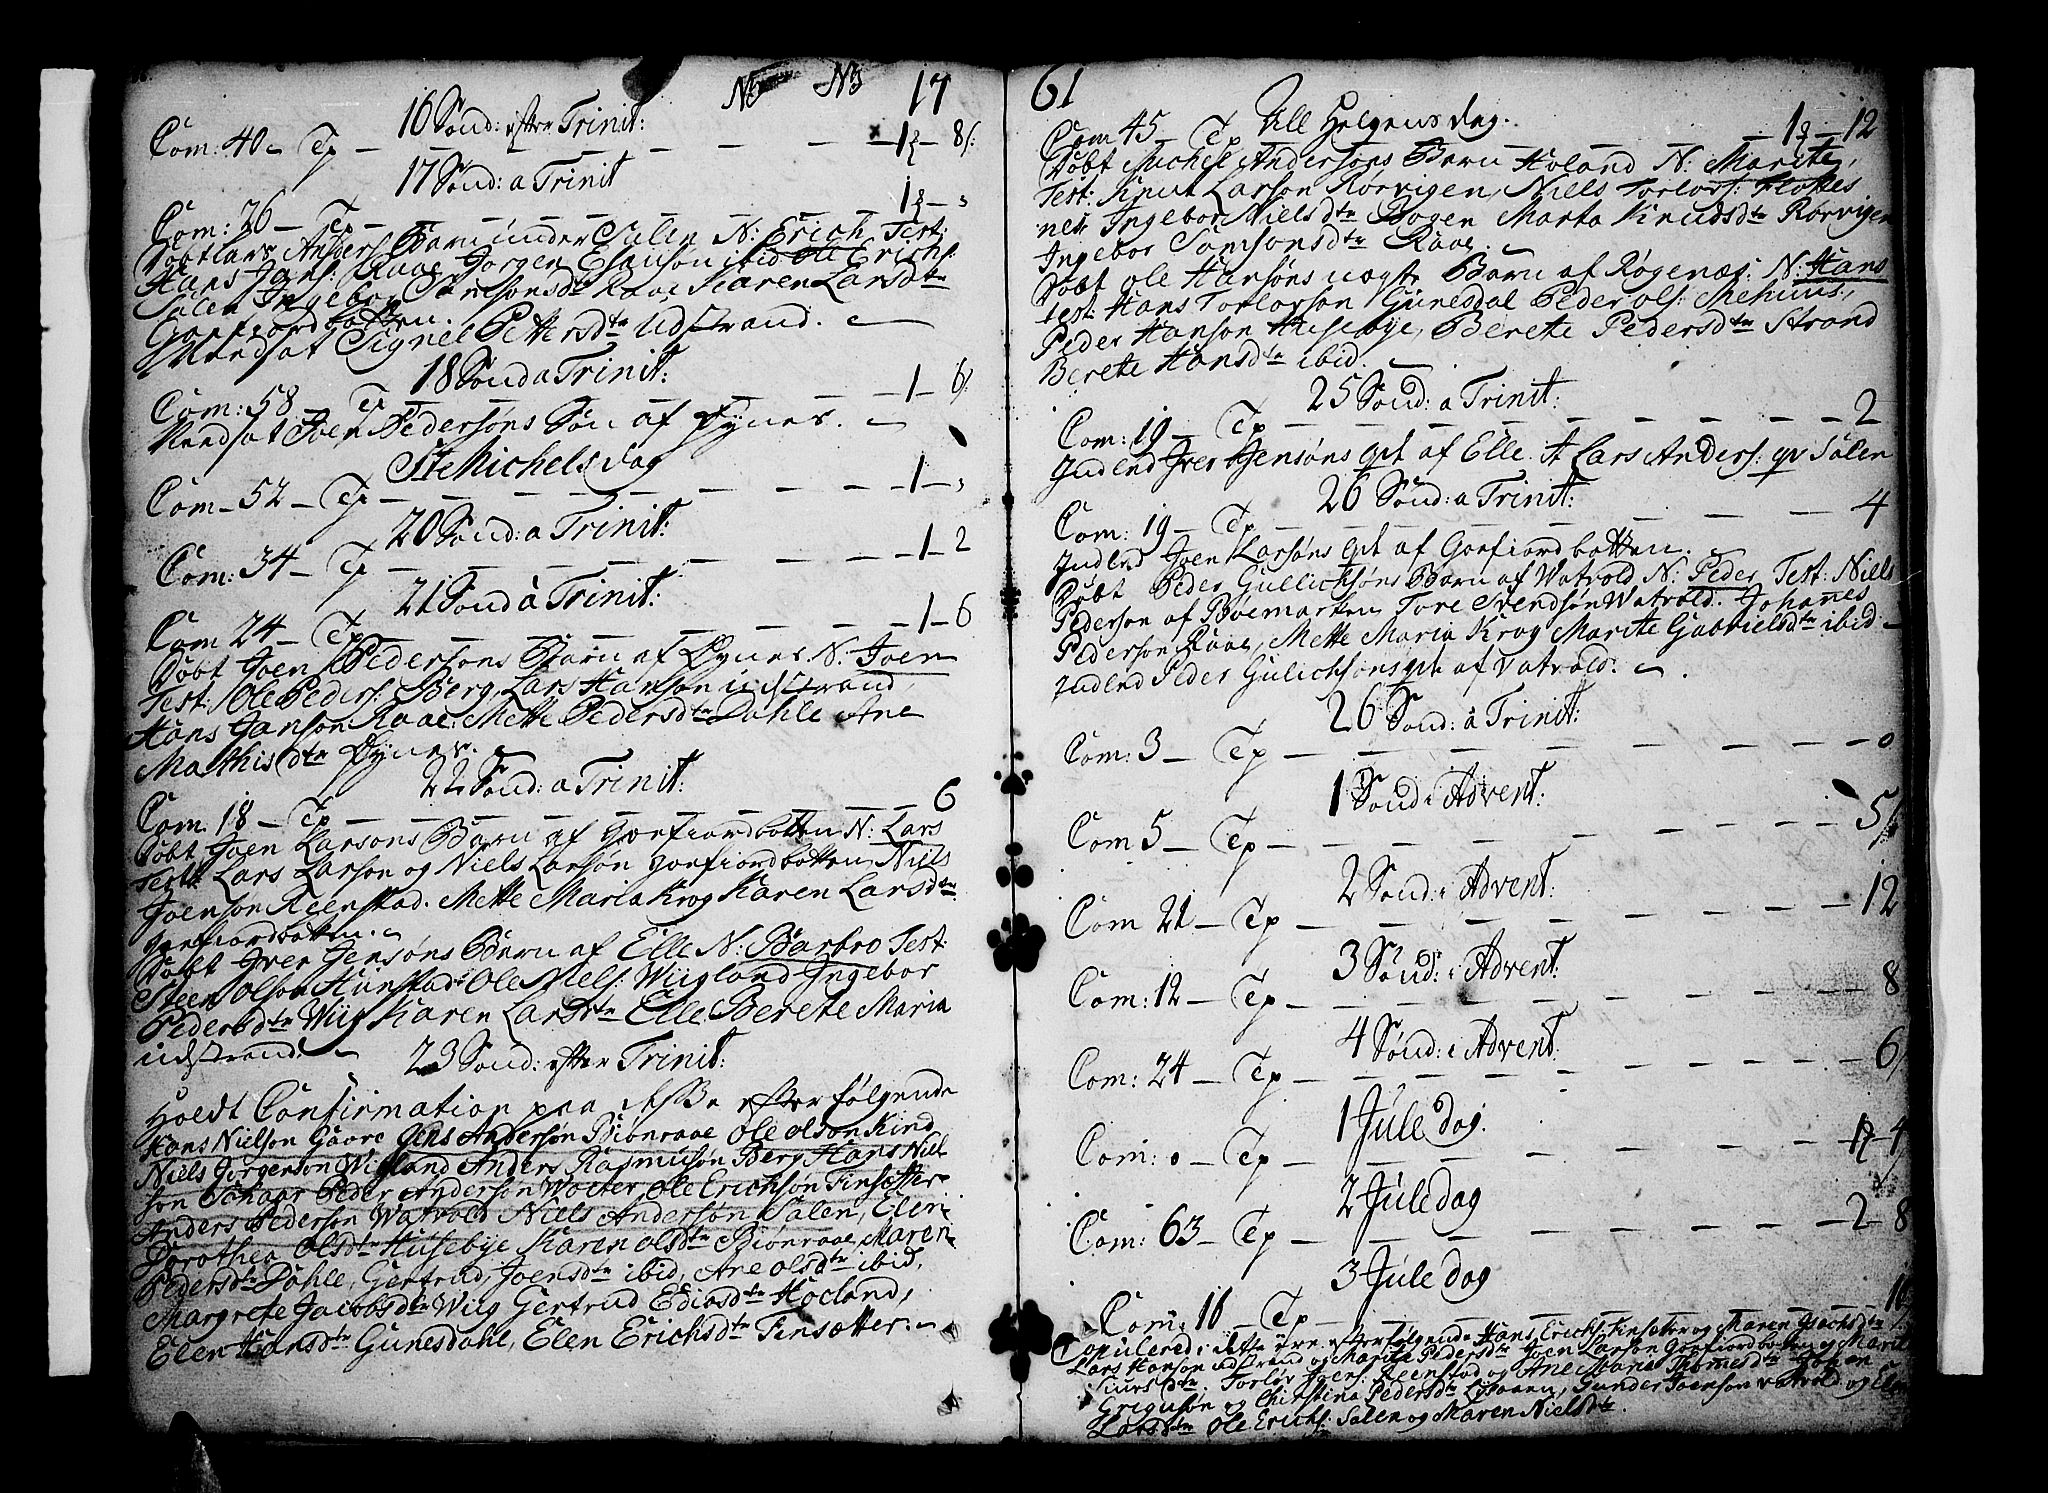 Nb Nb 17
16 Sønd: efter Trinit:
Com: 40 – Tp – – – – – – – 1 – 8 s:
17 Sønd: a Trinit
Com: 26 – Tp – – – – – – – 1 –
Døbt Lars Anders: Barn under Salen N: Erich Test:
Hans Jans: Raae Jørgen Ibid Ole Erichs:
Salen Ingebor Samsonsdtr Raae Karen Larsdtr
Goefiordbotten.
Vendsat Signel Pettersdtr Udstrand.
18 Sønd a Trinit:
Com: 58 – Tp – – – – – – – 1 – 6
Vendsat Joen Pedersøns Søn af Dynes.
St Michels dag
Com – 52 – Tp – – – – – – – 1 –
20 Sønd: a Trinit:
Com: 34 – Tp – – – – – – – 1 – 2
21 Sønd à Trinit:
Com 24 – Tp – – – – – – – 1 – 6
Døbt Joen Pedersons Barn af Dynes. N: Joen
Test: Ole Peders: Berg, Lars Hanson udstrand,
Hans Janson Raae: Mette Pedersdtr Dahle Ane
Mathisdtr Dynes.
22 Sønd: a Trinit:
Com. 18 – Tp – – – – – – – 6
Døbt Joen Larsons Barn af Goefiordbotten N: Lars
Test: Lars Larson og Niels Larson goefiordbotten Niels
Joenson Reenstad. Mette Maria Krog Karen Larsdtr
goefiordbotten.
Døbt Iver Jensøns Barn af Elle N: Barbro Test:
Steen Olson Hunstad Ole Niels: Wiigland Ingebor
Pedersdtr Wiig Karen Larsdtr Elle Berete Maria
udstrand.
23 Sønd: efter Trinit:
Holdt Confirmation paa efter følgende
Hans Nielson Gaare Jens Andersøn Biønraae Ole olson Kind
Niels Jørgenson Wigland Anders Rasmusøn Berg Hans Niel-
son Peder Andersøn Ole Erichsøn Finsætter
Anders Pederson Watvold Niels Andersøn Salen, Elen
Dorothea Olsdtr Husebye Karen olsdtr Biønraae, Maren
Pedersdtr Dahle, Gertrud Joensdtr ibid, Ane olsdtr ibid,
Margrete Jacobsdtr Wiig Gertrud Ediasdtr Hocland,
Elen Hansdtr Gunesdahl, Elen Erichsdtr Finsætter.
61
All Helgens dag.
Com 45 – Tp – – – – – – – 1 – 12
Døbt Michel Andersøns Barn Holand N: Marite,
Test: Knut Larson Rørvigen, Niels Torlofs: Flottes
nes Ingebor Nielsdtr Bogen Marta Knudsdtr Rørvigen
Ingebor Samsonsdtr Raae.
Døbt ole Hansøns uægte Barn af Røgenæs: N: Hans
test: Hans Torlofson Gunesdal Peder ols: Mehuus,
Peder Hanson Husebye, Berete Pedersdtr Strand
Berete Hansdtr ibid.
25 Sønd: a Trinit:
Com: 19 – Tp – – – – – – – 2
Indled Iver Jensøns qvt af Elle. It Lars Anders: qv Salen
26 Sønd: a Trinit:
Com: 19 – Tp – – – – – – – 4
Indled Joen Larsøns qvt af Goefiordbotten.
Døbt Peder Gullichsøns Barn af Watvold N: Peder Test: Niels
Pederson af Boemarken Tore Svendsøn Watvold. Johanes
Pederson Raae, Mette Maria Krog Marite Gabrielsdtr ibid.
Indled Peder Gulichsøns qvt af Vatvold.
26 Sønd: à Trinit:
Com: 3 – Tp – – – – – – – 0
1 Sønd i Advent:
Com 5 – Tp – – – – – – – 5
2 Sønd: i Advent:
Com 21 – Tp – – – – – – – 12
3 Sønd: i Advent:
Com: 12 – Tp – – – – – – – 8
4 Sønd: i Advent:
Com: 24 – Tp – – – – – – – 6
1 Jule dag:
Com: 0 – Tp – – – – – – – 4
2 Jule dag
Com: 63 – Tp – – – – – – – 2 – 8
3 Jule dag
Com: 16 – Tp – – – – – – –
Copulered i dette efterfølgende Hans Erichs: Finsetter og Maren
Lars Hanson udstrand og Marite Pedersdtr Joen Larson Goefiordbotten og Marit
Torlof Joens: Reenstad og Ane Maria Thomesdtr Johan
og Christina Pedersdtr Gunder Joenson Vatvold og Elen
Larsdtr Ole Erichs: Salen og Maren Nielsdtr.